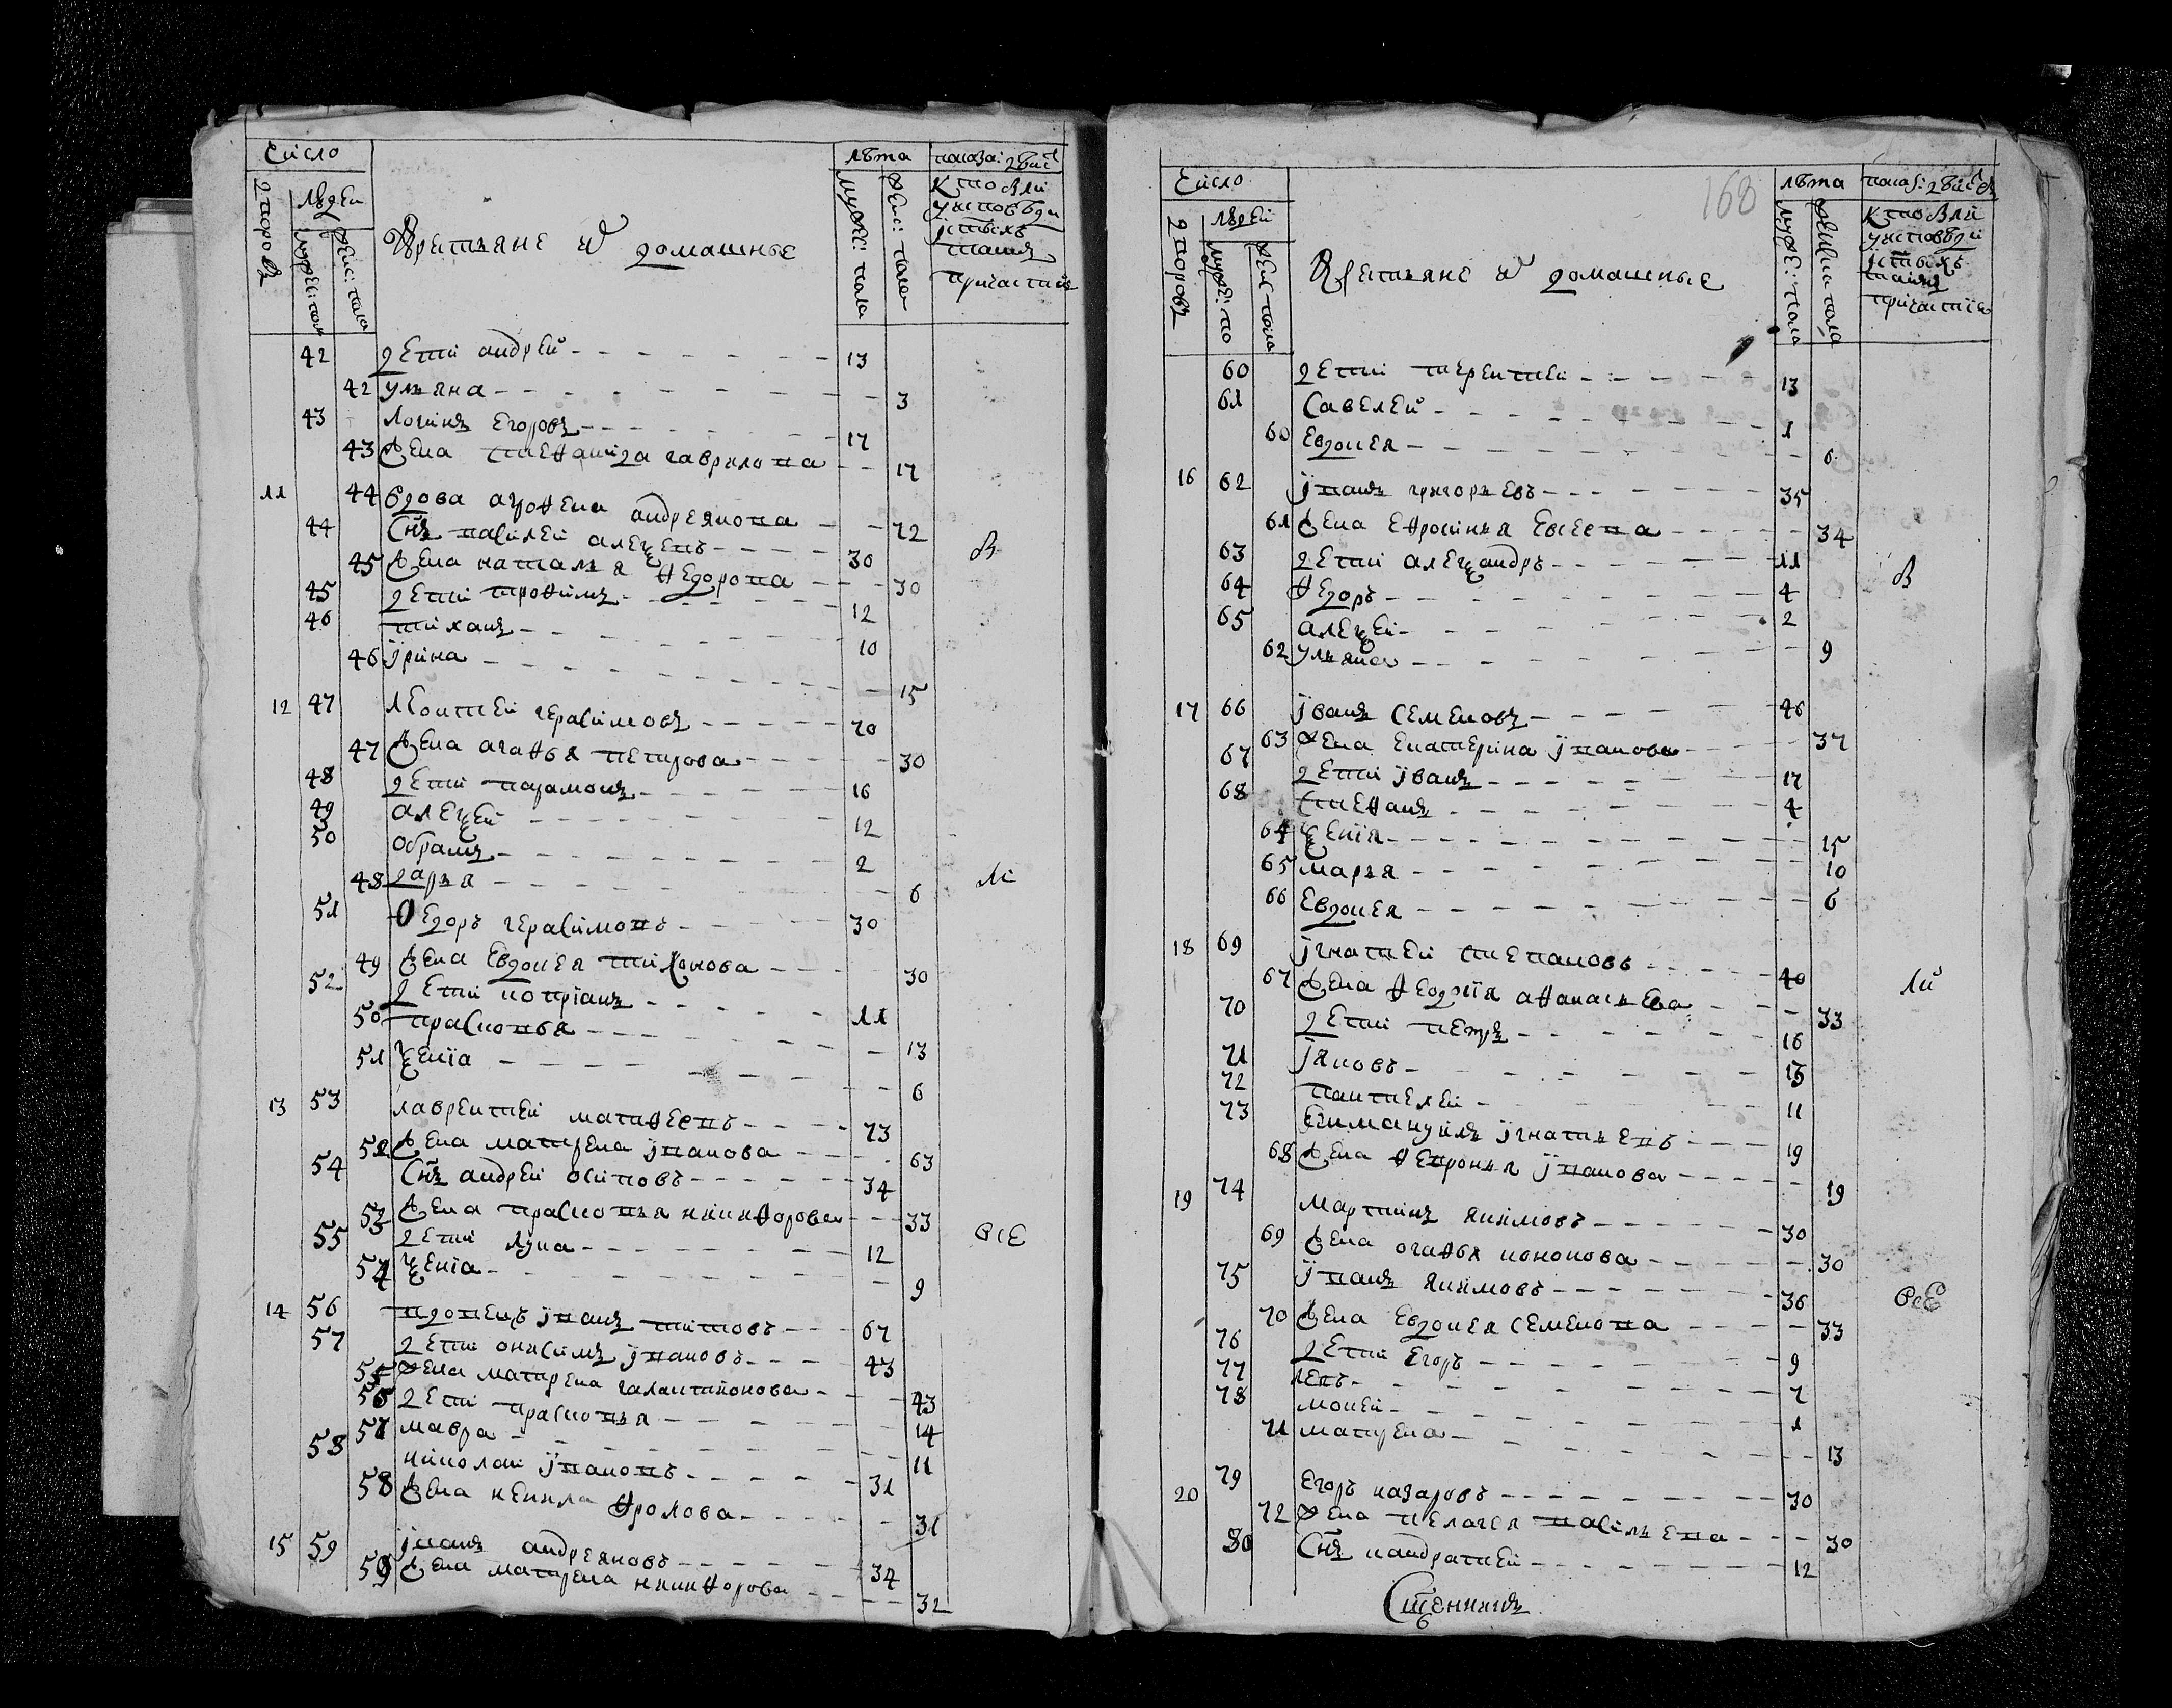 Число лѣта показа: дѣйс
дворовъ людей мужес: пола женс: пола
Крестьяне и домашные
мужес: пола женс: пола
Кто былъ у исповѣди и святыхъ таинъ причастия
42 дети андрей 13
42 ульяна 3
43 логинъ егоровъ 17
43 жена степанида гаврилова 17
11 44 вдова агрофена андреянова 72
44 Снъ василей алеѯевъ 30
45 жена наталья федорова 30
45 дети трофимъ 12
46 тиханъ 10
46 ирина 15
12 47 леонтей герасимовъ 70
47 жена агафья петрова 30
48 дети парамонъ 16
49 алеѯей 12
50 обрамъ 2
48 дарья 6
51 Федоръ герасимовъ 30
49 жена Евдокея тихонова 30
52 дети коприанъ 11
50 прасковья 13
51 ѯения 6
13 53 лаврентей матфеевъ 73
52 жена матрена иванова 63
54 Снъ андрей осиповъ 34
53 жена прасковья никифорова 33
55 дети лука 12
54 ѯения 9
все
14 56 вдовецъ иванъ титовъ 67
57 дети онисимъ ивановъ 43
55 жена матрена галактионова 43
56 дети прасковья 14
57 мавра 11
58 николай ивановъ 31
58 жена ненила фролова 31
15 59 иванъ андреяновъ 34
59 жена матрена никифорова 32
168
Число лѣта показ: дѣйс
дворовъ людей мужес: по женс пола
Крестьяне и домашные
муже: пола женски пола
Кто былъ у исповѣди и святыхъ таинъ причастия
60 дети терентей 13
61 Савелей 1
60 Евдокея 6
16 62 иванъ григорьевъ 35
61 жена Ефросинья Евсеева 34
63 дети алеѯандръ 11
64 федоръ 4
65 алеѯей 2
62 ульяна 9
17 66 иванъ семеновъ 46
63 жена екатерина иванова 37
67 дети иванъ 17
68 степанъ 4
64 ѯения 15
65 марья 10
66 Евдокея 6
18 69 игнатей степановъ 40
67 жена феодосия афанасьева 33
70 дети петръ 16
71 яковъ 13
72 пантелей 11
73 Еммануилъ игнатьевъ 19
68 жена февронья иванова 19
19 74 мартинъ якимовъ 30
69 жена огафья кононова 30
75 иванъ якимовъ 36
все
70 жена Евдокея семенова 33
76 дети Егоръ 9
77 левъ 7
78 мокей 1
71 матрена 13
20 79 Егоръ назаровъ 30
72 жена пелагея васильева 30
80 Снъ кандратей 12